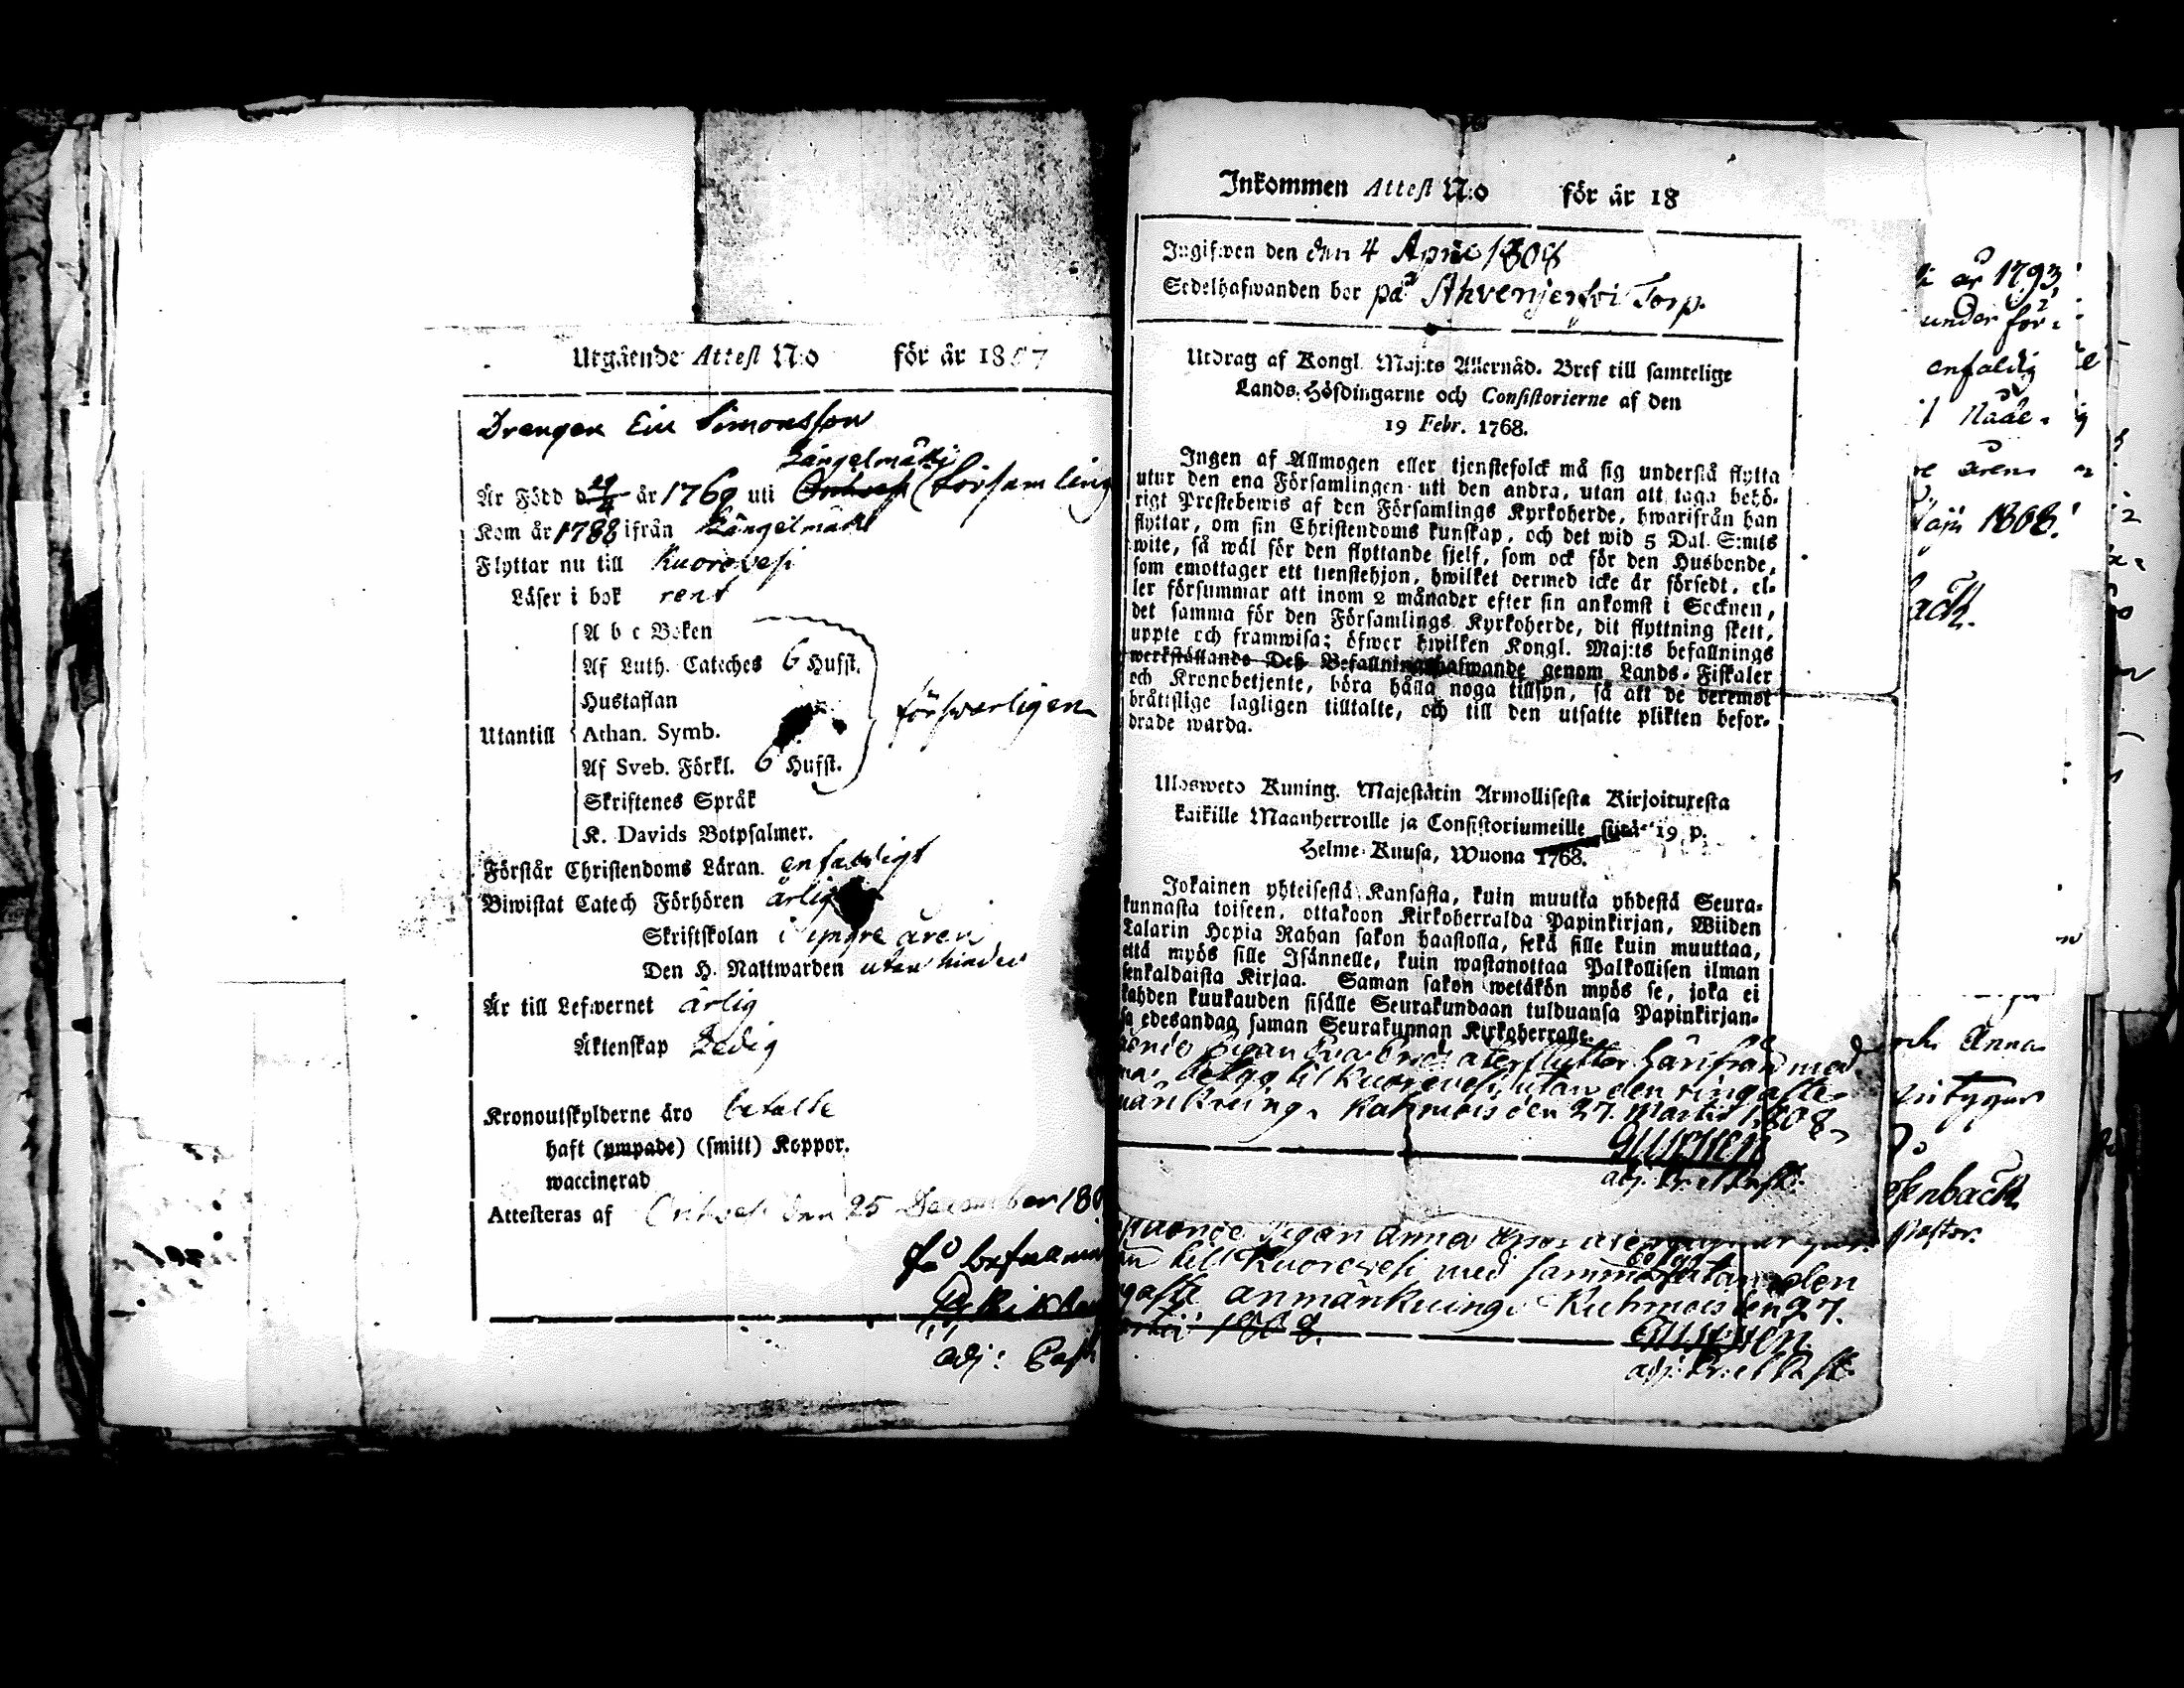 Utgående Attest N:o för år 1807
Drengen Eric Simonsson
Längelmäki
Är Född d 29/4 år 1769 uti Orihvesi Församling
Kom år 1788 ifrån Längelmäki
Flyttar nu till Kuorevesi
Läser i bok rent
A b c Boken
Af Luth. Cateches 6 Hufst.
Hustaflan
försvarligen
Utantill Athan. Symb.
Af Sveb. Förkl. 6 Hufst.
Skriftenes Språk
K. Davids Botpsalmer.
Förstår Christendoms Läran. enfaldigt
Biwistat Catech Förhören årlig
Skriftskolan i yngre åren
Den H. Nattwarden utan hinder
Är till Lefwernet ärlig
Äktenskap Ledig
Kronoutskylderne äro betalte
haft (ympade) (smitt) Koppor.
waccinerad
Attesteras af Orihvesi den 25 December 180
På befallning
adj: Past
Inkommen Attest N:o för år 18
Ingifwen den den 4 April 1808
Sedelhafwanden bor på Ahvenjerfvi Torp.
Utdrag af Kongl. Maj:ts Allernåd. Bref till samtelige
Lands-Höfdingarne och Consistorierne af den
19 Febr. 1768.
Ingen af Allmogen eller tjenstefolck må sig understå flytta
utur den ena Församlingen uti den andra, utan att taga behö-
rigt Prestebewis af den Församlings Kyrkoherde, hwarifrån han
flyttar, om sin Christendoms kunskap, och det wid 5 Dal. S:mts
wite, så wäl för den flyttande sjelf, som ock för den Husbonde,
som emottager ett tienstehjon, hwilket dermed icke är försedt, el-
ler försummar att inom 2 månader efter sin ankomst i Socknen,
det samma för den Församlings Kyrkoherde, dit flyttning skett,
uppte och framwisa; öfwer hwilken Kongl. Maj:ts befallnings
werkställande Deß Befallningshafwande genom Lands-Fiskaler
och Kronobetjente, böra hålla noga tillsyn, så att de deremot
bråttslige lagligen tilltalte, och till den utsatte plikten befor-
drade warda.
Ulosweto Kuning. Majestätin Armollisesta Kirjoituxesta
kaikille Maanherroille ja Consistoriumeille siitä 19 p.
Helme-Kuusa, Wuona 1768.
Jokainen yhteisestä Kansasta, kuin muutta yhdestä Seura-
kunnasta toiseen, ottakoon Kirkoherralda Papinkirjan, Wiiden
Talarin Hopia Rahan sakon haastolla, sekä sille kuin muuttaa,
että myös sille Isännelle, kuin wastanottaa Palkollisen ilman
senkaldaista Kirjaa. Saman sakon wetäkön myös se, joka ei
kahden kuukauden sisälle Seurakundaan tulduansa Papinkirjan-
sa edesandaa saman Seurakunnan Kirkoherralle.
Pigan Eva återflytter härifrån med
betyg til Kuorevesi, utan den ringaste
Kuhmois den 27. Martii 1808.
Pigan Anna
till Kuorevesi med samma betyg utan den
gaste anmärkning. Kuhmois den 27.
1808.
år 1793
under för-
enfaldig
Nåde-
åren
Maji 1808.
Anna
Pastor.